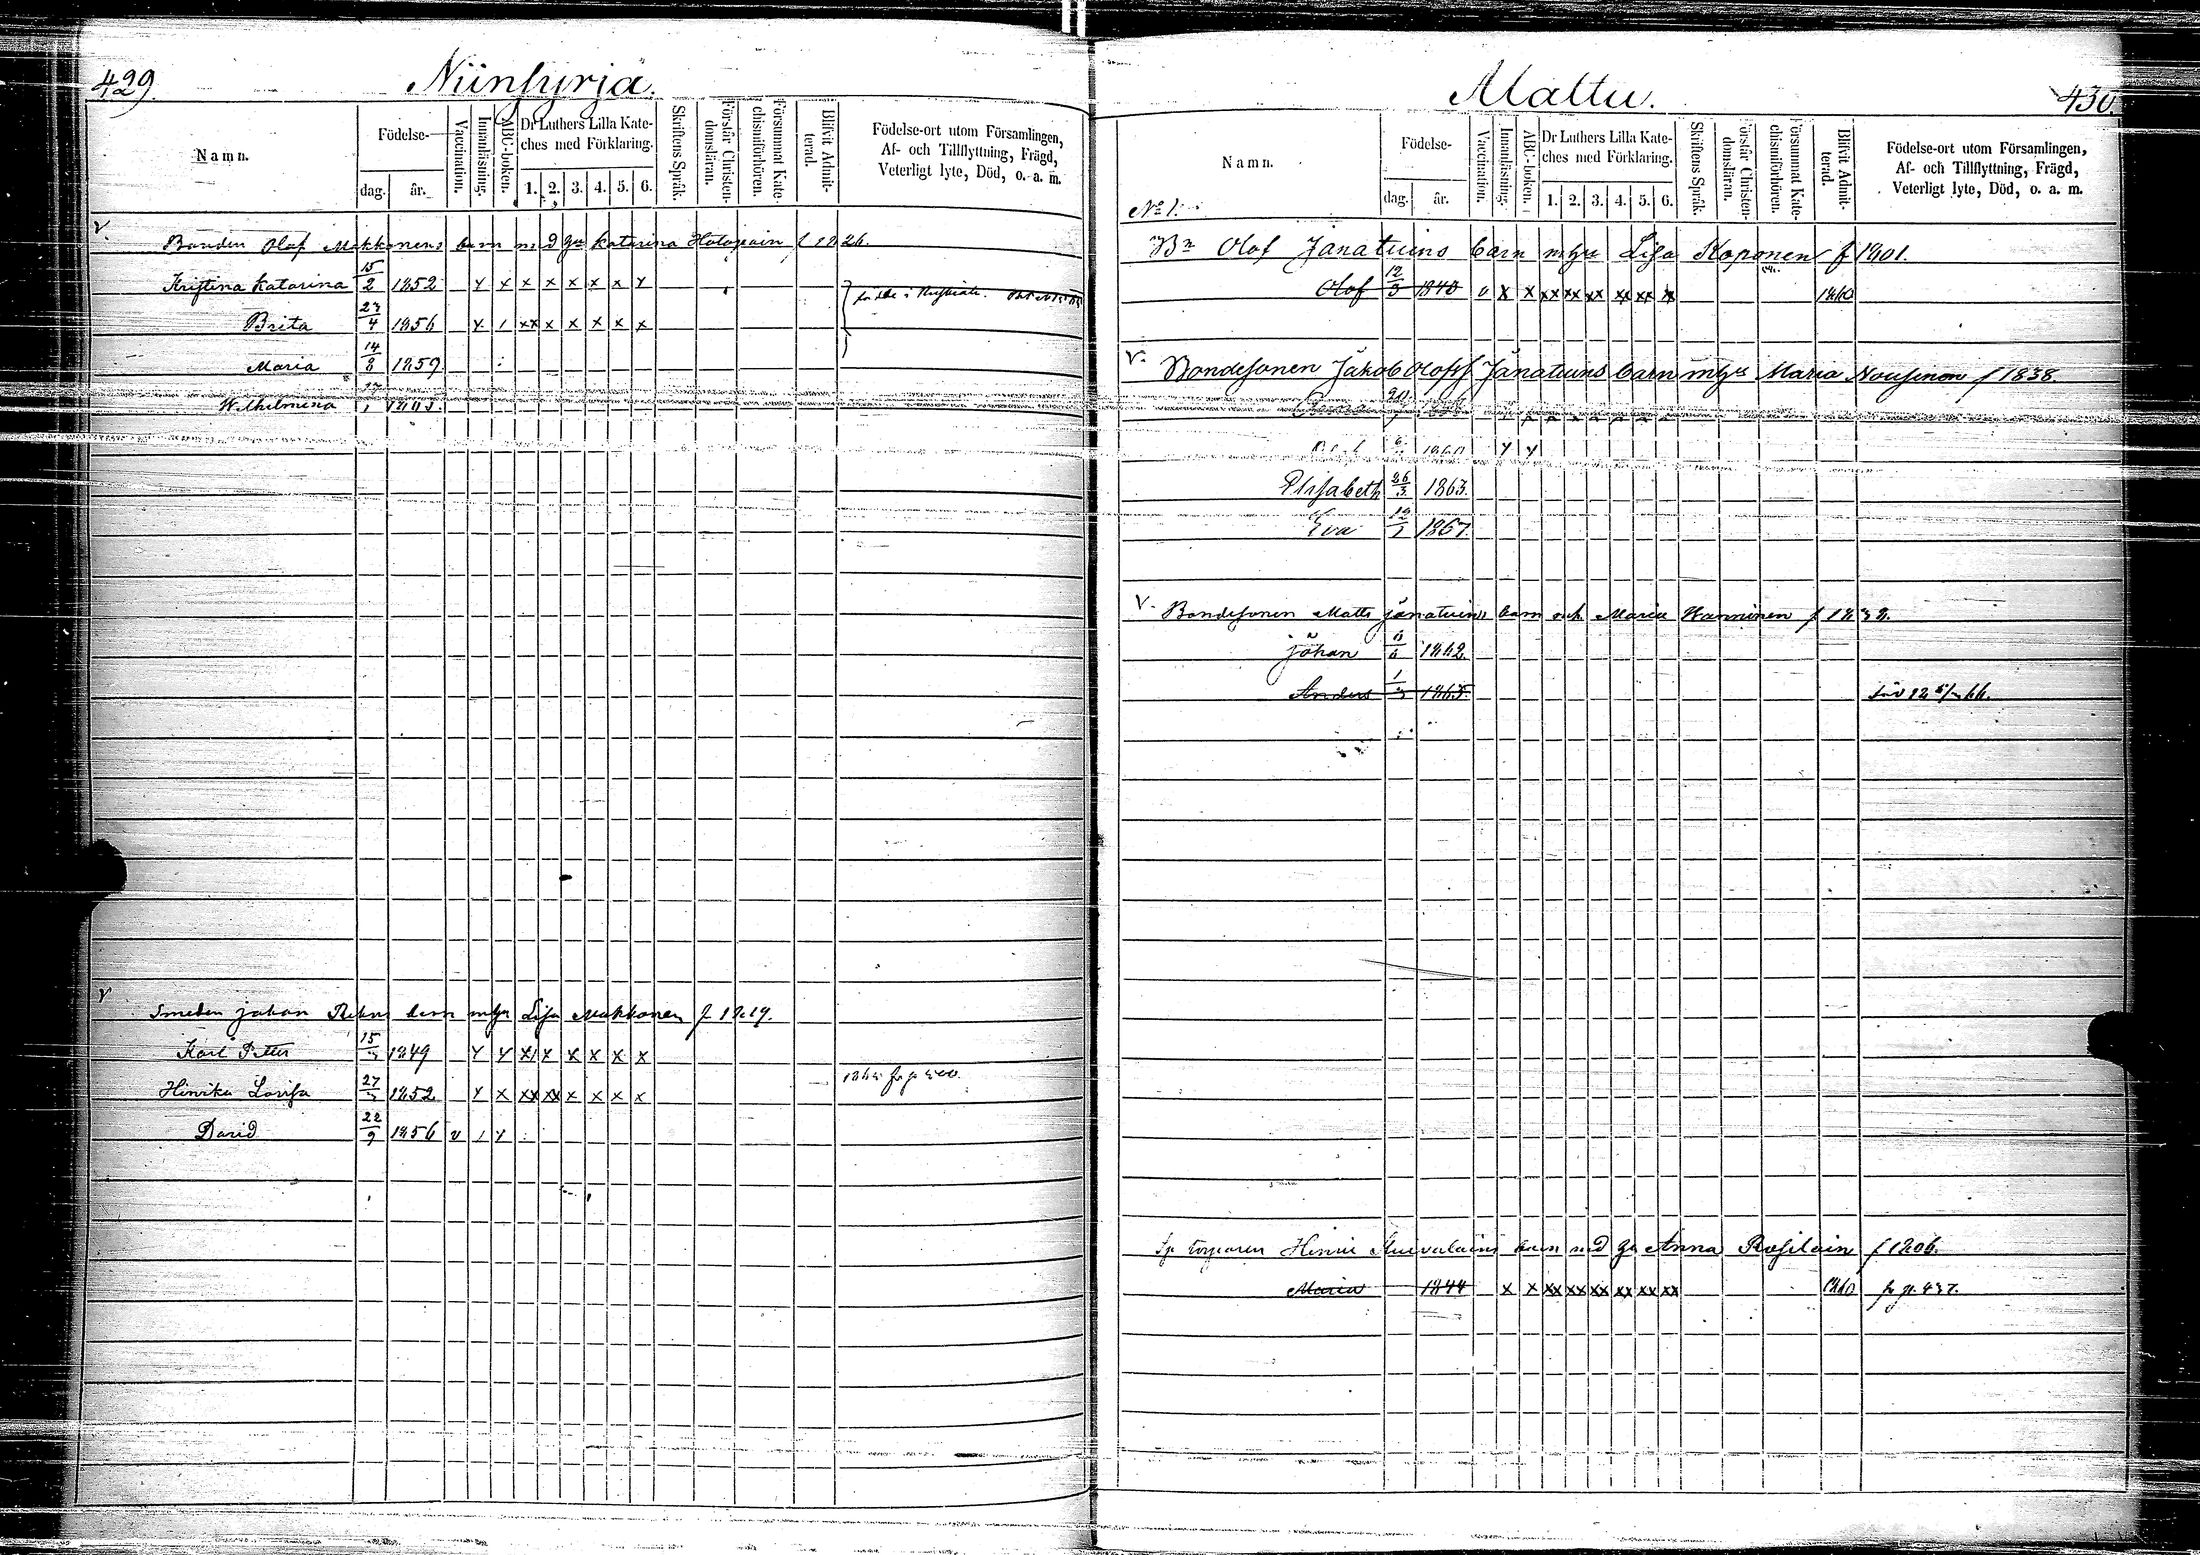 429.
Niinsyrjä.
Namn.
Födelse-
dag.
år.
Vaccination.
Innanläsning.
ABC-boken.
Dr Luthers Lilla Kate-
ches med Förklaring.
1. 2. 3. 4. 5. 6.
Skriftens Språk.
Förstår Christen-
domsläran.
Försummat Kate-
chismiförhören.
Blifvit Admit-
terad.
Födelse-ort utom Församlingen,
Af- och Tillflyttning, Frägd,
Veterligt lyte, Död, o. a. m.
v.
Bonden Olof Makkonens barn med hu Katarina Holopain f 1826.
Kristina Katarina 15/2 1852 x x x x x x x x
Brita 27/4 1856 x / xx x x x x x
Maria 14/8 1859
Wilhelmina
v
Smeden Johan barn m hu Lisa Makkonen f 1819.
Karl Petter 15/ 1849 x x x x x x x x
Hinrika Lovisa 27/ 1852 x x xx xx x x x x
David 22/9 1856 v / x
430.
Maltu.
Namn.
Födelse-
dag.
år.
Vaccination.
Innanläsning.
ABC-boken.
Dr Luthers Lilla Kate-
ches med Förklaring.
1. 2. 3. 4. 5. 6.
Skriftens Språk.
Förstår Christen-
domsläran.
Försummat Kate-
chismiförhören.
Blifvit Admit-
terad.
Födelse-ort utom Församlingen,
Af- och Tillflyttning, Frägd,
Veterligt lyte, Död, o. a. m.
No 1.
Bn Olof Jänatuins barn m hu Lisa Koponen f 1801.
Olof 12/3 1840 v x x xx xx xx xx xx xx 1860
v. Bondesonen Jakob Olofss Jänatuins barn m hu Maria Nousinen f 1838.
1860 x x
Elisabeth 26/3 1863.
Eva 12/1 1867.
v. Bondesonen Matts Jänatuins barn och Maria Hanninen f 1838.
Johan 1862.
Anders 1/3 1865.
Henric barn med hu Anna Rossilain f 1806.
Maria 1844 x x xx xx xx xx xx xx 1860 fr p. 437.